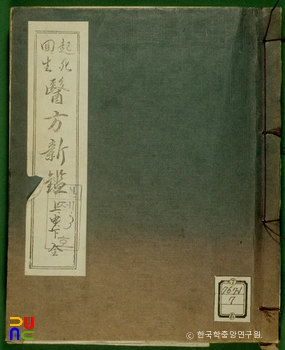 起死
回生
醫方新鑑
上中下全
7671
7
ⓒ 한국학중앙연구원